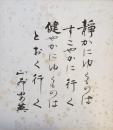 静かにゆくものは
すこやかに行く
健やかにゆくものは
とおく行く